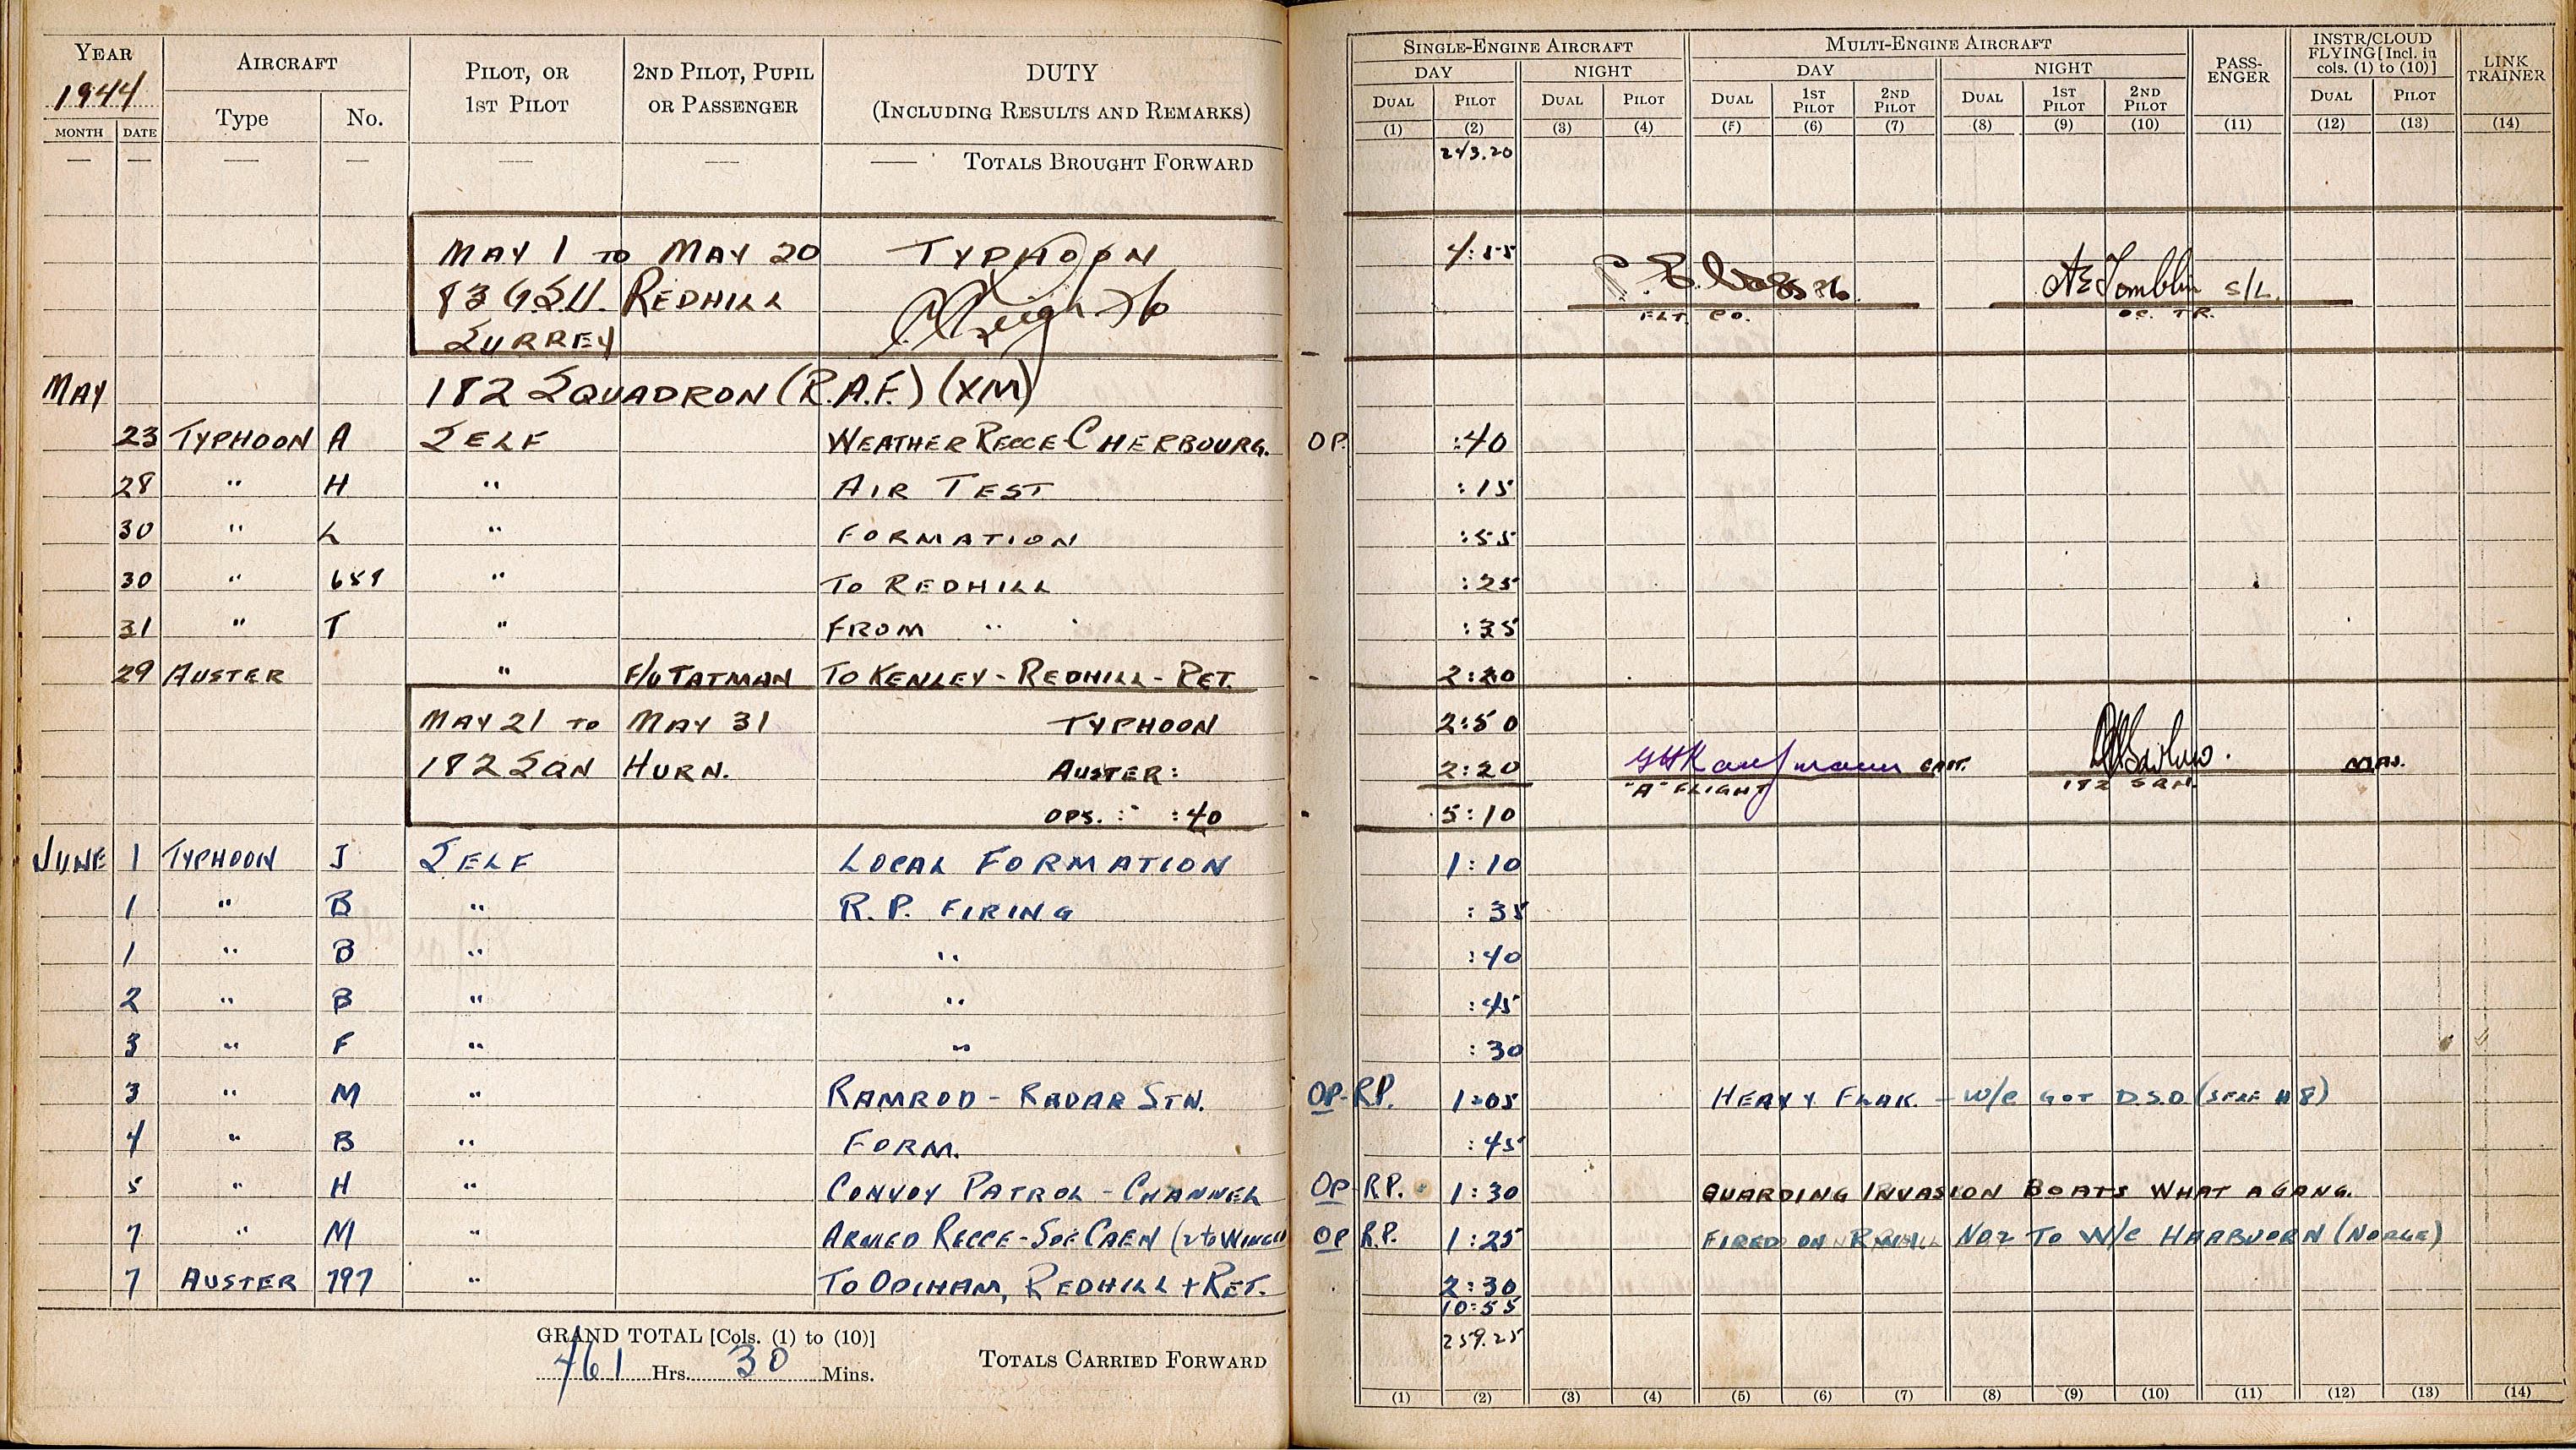 YEAR 1944 AIRCRAFT PILOT, OR 1ST PILOT 2ND PILOT, PUPIL OR PASSENGER DUTY (INCLUDING RESULTS AND REMARKS)
MONTH DATE Type No.
— — — — — — — TOTALS BROUGHT FORWARD
MAY 1 TO MAY 20 TYPHOON
83 G.S.U. REDHILL
SURREY
MAY 182 SQUADRON (R.A.F.) (XM)
23 TYPHOON A SELF WEATHER RECCE CHERBOURG.
28 " H " AIR TEST
30 " L " FORMATION
30 " " TO REDHILL
31 " T " FROM "
29 AUSTER " F/O TATMAN TO KENLEY - REDHILL - RET.
MAY 21 TO MAY 31 TYPHOON
182 SQN HURN. AUSTER:
OPS. : :40
JUNE 1 TYPHOON J SELF LOCAL FORMATION
1 " B " R.P. FIRING
1 " B " "
2 " B " "
3 " F " "
3 " M " RAMROD - RADAR STN.
4 " B " FORM.
5 " H " CONVOY PATROL - CHANNEL
7 " M " ARMED RECCE - S OF CAEN
7 AUSTER 797 " TO ODIHAM, REDHILL + RET.
GRAND TOTAL [Cols. (1) to (10)]
461 Hrs. 30 Mins.
TOTALS CARRIED FORWARD
SINGLE-ENGINE AIRCRAFT MULTI-ENGINE AIRCRAFT PASS-ENGER INSTR/CLOUD FLYING [Incl. in cols. (1) to (10)] LINK TRAINER
DAY NIGHT DAY NIGHT
DUAL PILOT DUAL PILOT DUAL 1ST PILOT 2ND PILOT DUAL 1ST PILOT 2ND PILOT DUAL PILOT
(1) (2) (3) (4) (5) (6) (7) (8) (9) (10) (11) (12) (13) (14)
243.20
4:55
A E Tomblin S/L.
FLT. CO. OC. TR.
OP. :40
:15
:55
:25
:35
2:20
2:50
2:20 GHKaufmann CAPT. MAJ.
"A" FLIGHT 182 SQN.
5:10
1:10
:35
:40
:45
:30
OP - R.P. 1:05 HEAVY FLAK - W/C GOT D.S.O
:45
OP R.P. 1:30 GUARDING INVASION BOATS WHAT A GANG.
OP R.P. 1:25 FIRED ON No 2 TO W/C
2:30
10:55
259.25
(1) (2) (3) (4) (5) (6) (7) (8) (9) (10) (11) (12) (13) (14)